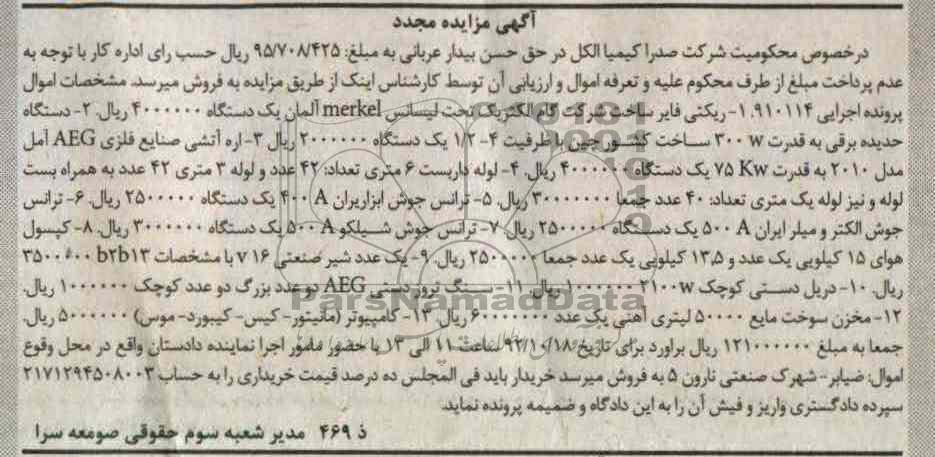 آگهی مزایده مجدد
درخصوص محکومیت شرکت صدرا کیمیا الکل در حق حسن بیدار عربانی به مبلغ: ۹۵/۷۰۸/۴۲۵ ریال حسب رای اداره کار با توجه به
عدم پرداخت مبلغ از طرف محکوم علیه و تعرفه اموال و ارزیابی آن توسط کارشناس اینک از طریق مزایده به فروش میرسد. مشخصات اموال
پرونده اجرایی ۹۱۰۱۱۴. ۱- ریکتی فایر ساخت شرکت گام الکتریک تحت لیسانس merkel آلمان یک دستگاه ۴۰۰۰۰۰۰ ریال. ۲- دستگاه
حدیده برقی به قدرت ۳۰۰ w ساخت کشور چین با ظرفیت ۴- ۱/۲ یک دستگاه ۲۰۰۰۰۰۰ ریال ۳- اره آتشی صنایع فلزی AEG آمل
مدل ۲۰۱۰ به قدرت ۷۵ Kw یک دستگاه ۴۰۰۰۰۰۰ ریال. ۴- لوله داربست ۶ متری تعداد: ۴۲ عدد و لوله ۳ متری ۴۲ عدد به همراه بست
لوله و نیز لوله یک متری تعداد: ۴۰ عدد جمعا ۳۰۰۰۰۰۰۰ ریال. ۵- ترانس جوش ابزاریران ۴۰۰ A یک دستگاه ۲۵۰۰۰۰۰ ریال. ۶- ترانس
جوش الکتر و میلر ایران ۵۰۰ A یک دستگاه ۲۵۰۰۰۰۰ ریال. ۷- ترانس جوش شیلکو ۵۰۰ A یک دستگاه ۳۰۰۰۰۰۰ ریال. ۸- کپسول
هوای ۱۵ کیلویی یک عدد و ۱۳,۵ کیلویی یک عدد جمعا ۲۵۰۰۰۰۰ ریال. ۹- یک عدد شیر صنعتی v ۱۶ با مشخصات b۲b۱۳ ۳۵۰۰۰۰۰
ریال. ۱۰- دریل دستی کوچک ۲۱۰۰w ۱۰۰۰۰۰۰ ریال. ۱۱- سنگ تروز دستی AEG دو عدد بزرگ دو عدد کوچک ۱۰۰۰۰۰۰ ریال.
۱۲- مخزن سوخت مایع ۵۰۰۰۰ لیتری آهنی یک عدد ۶۰۰۰۰۰۰۰ ریال. ۱۳- کامپیوتر (مانیتور- کیس- کیبورد- موس) ۵۰۰۰۰۰۰ ریال.
جمعا به مبلغ ۱۲۱۰۰۰۰۰۰ ریال براورد برای تاریخ ۹۲/۱۰/۱۸ ساعت ۱۱ الی ۱۳ با حضور مامور اجرا نماینده دادستان واقع در محل وقوع
اموال: ضیابر- شهرک صنعتی تارون ۵ به فروش میرسد خریدار باید فی المجلس ده درصد قیمت خریداری را به حساب ۲۱۷۱۲۹۴۵۰۸۰۰۳
سپرده دادگستری واریز و فیش آن را به این دادگاه و ضمیمه پرونده نماید.
ذ ۴۶۹ مدیر شعبه سوم حقوقی صومعه سرا
ParsNamadData